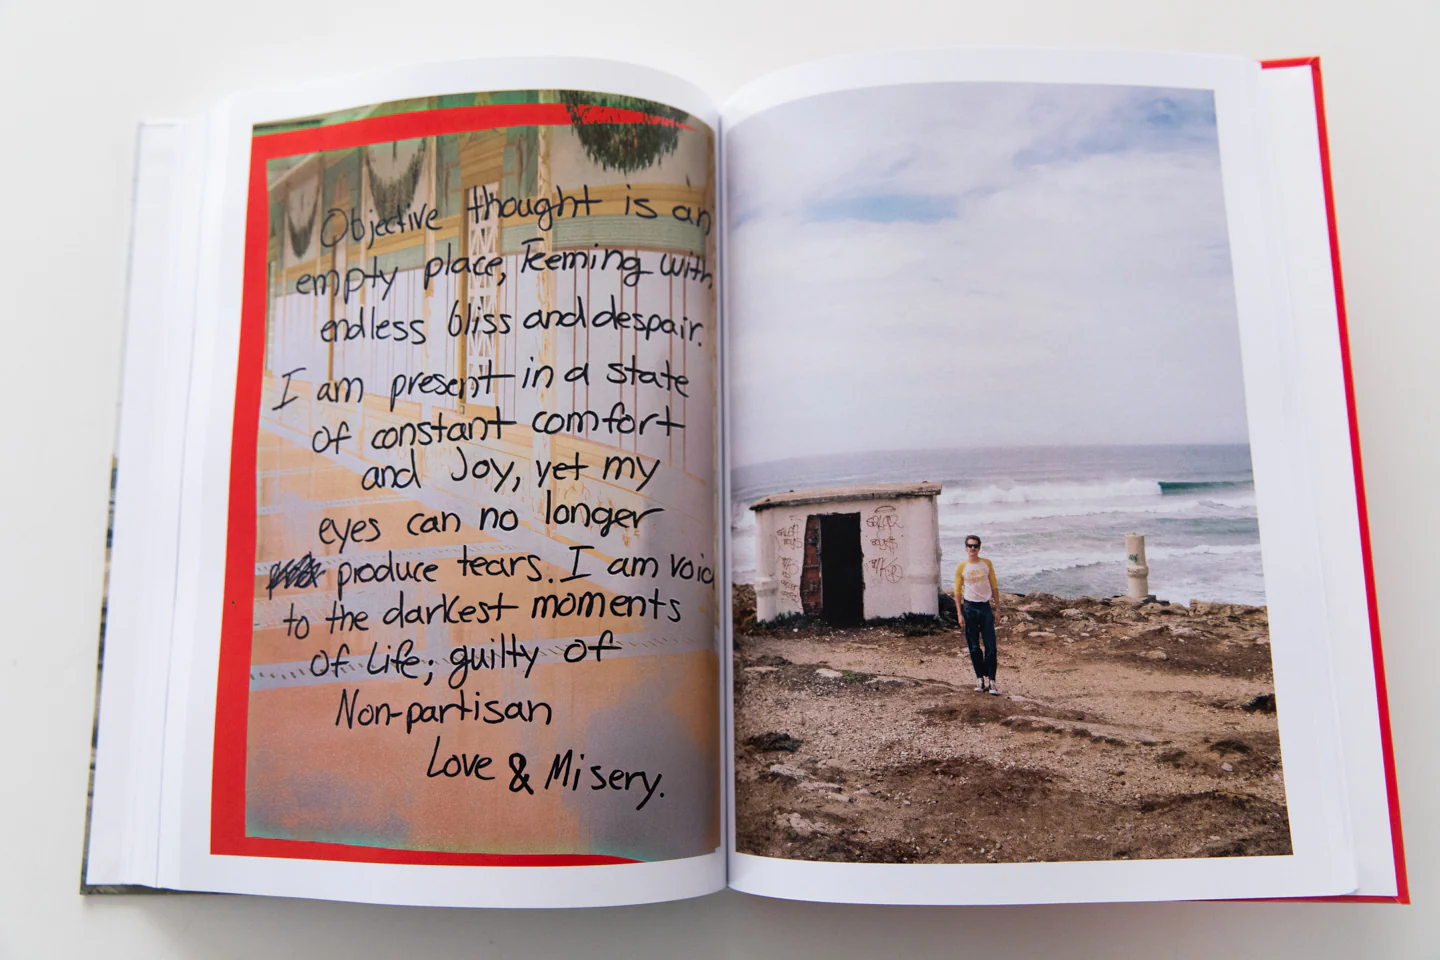 Objective thought is an
empty place, Teeming with
endless bliss and despair.
I am present in a state
of constant comfort
and Joy, yet my
eyes can no longer
produce tears. I am void
to the darkest moments
of Life; guilty of
Non-partisan
Love & Misery.